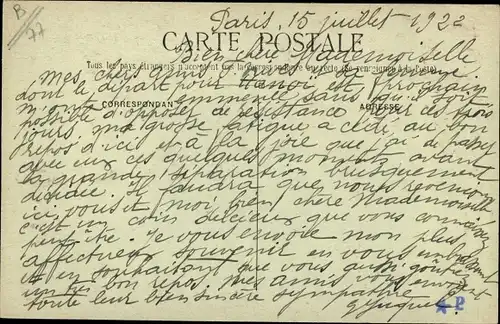 B
77
Paris, 15 juillet 1922
CARTE POSTALE
Bien chère Mademoiselle
Tous les pays étrangers n'acceptent pas la correspondance au recto (se renseigner à la Poste)
Mes chers amis
dont le départ pour Hanoï est prochain
CORRESPONDANCE
ADRESSE
m'ont emmenée sans qu'il soit
possible d'opposer de résistance pour ces trois
jours. Ma grosse fatigue a cédé, au bon
repos d'ici et à la joie que j'ai de passer
avec eux ces quelques moments avant
la grande séparation brusquement
décidée. Il faudra que nous revenions
ici, vous et moi, bien chère Mademoiselle
c'est un coin délicieux que vous connaissez
peut-être. Je vous envoie mon plus
affectueux souvenir en vous embrassant
et en souhaitant que vous aussi goûtiez
un très bon repos. Mes amis vous envoient
toute leur bien sincère sympathie